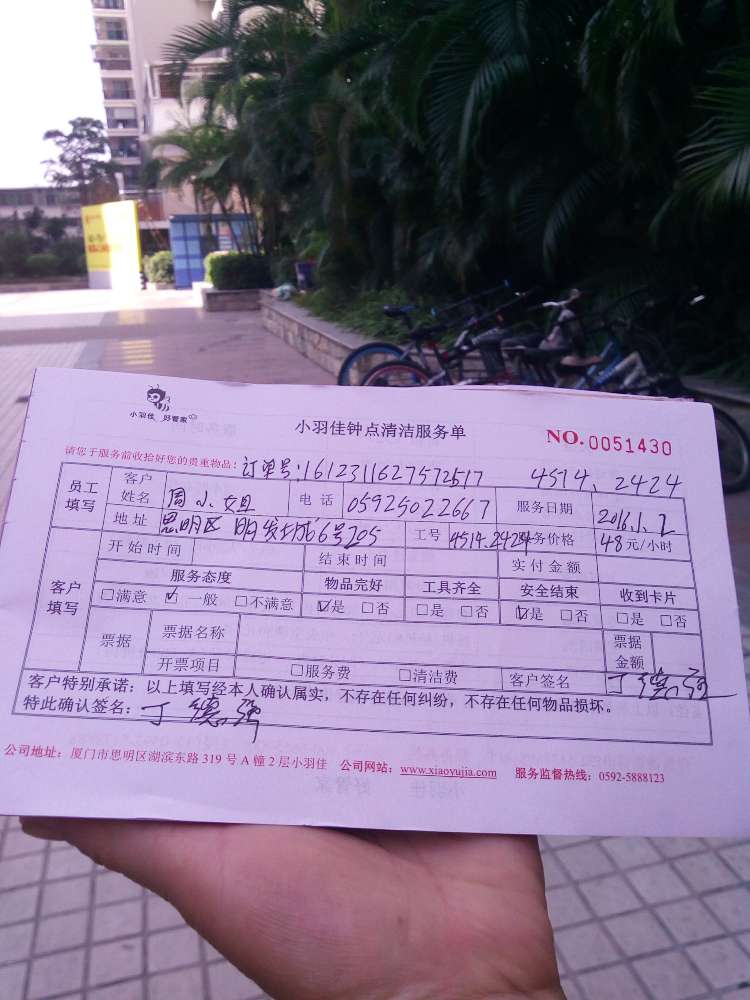 小羽佳 好管家
小羽佳钟点清洁服务单
NO. 0051430
请您于服务前收拾好您的贵重物品: 订单号:1612311627572517 4514、2424
员工填写 客户姓名 周小姐 电话 05925022667 服务日期 2016.1.2
地址 思明区 明发城6号205 工号 4514.2424 务价格 48元/小时
客户填写 开始时间 结束时间 实付金额
服务态度 物品完好 工具齐全 安全结束 收到卡片
□满意 ☑一般 □不满意 ☑是 □否 □是 □否 ☑是 □否 □是 □否
票据 票据名称 票据金额
开票项目 □服务费 □清洁费 客户签名 丁德强
客户特别承诺:以上填写经本人确认属实,不存在任何纠纷,不存在任何物品损坏。
特此确认签名: 丁德强
公司地址:厦门市思明区湖滨东路319号A幢2层小羽佳 公司网站:www.xiaoyujia.com 服务监督热线:0592-5888123